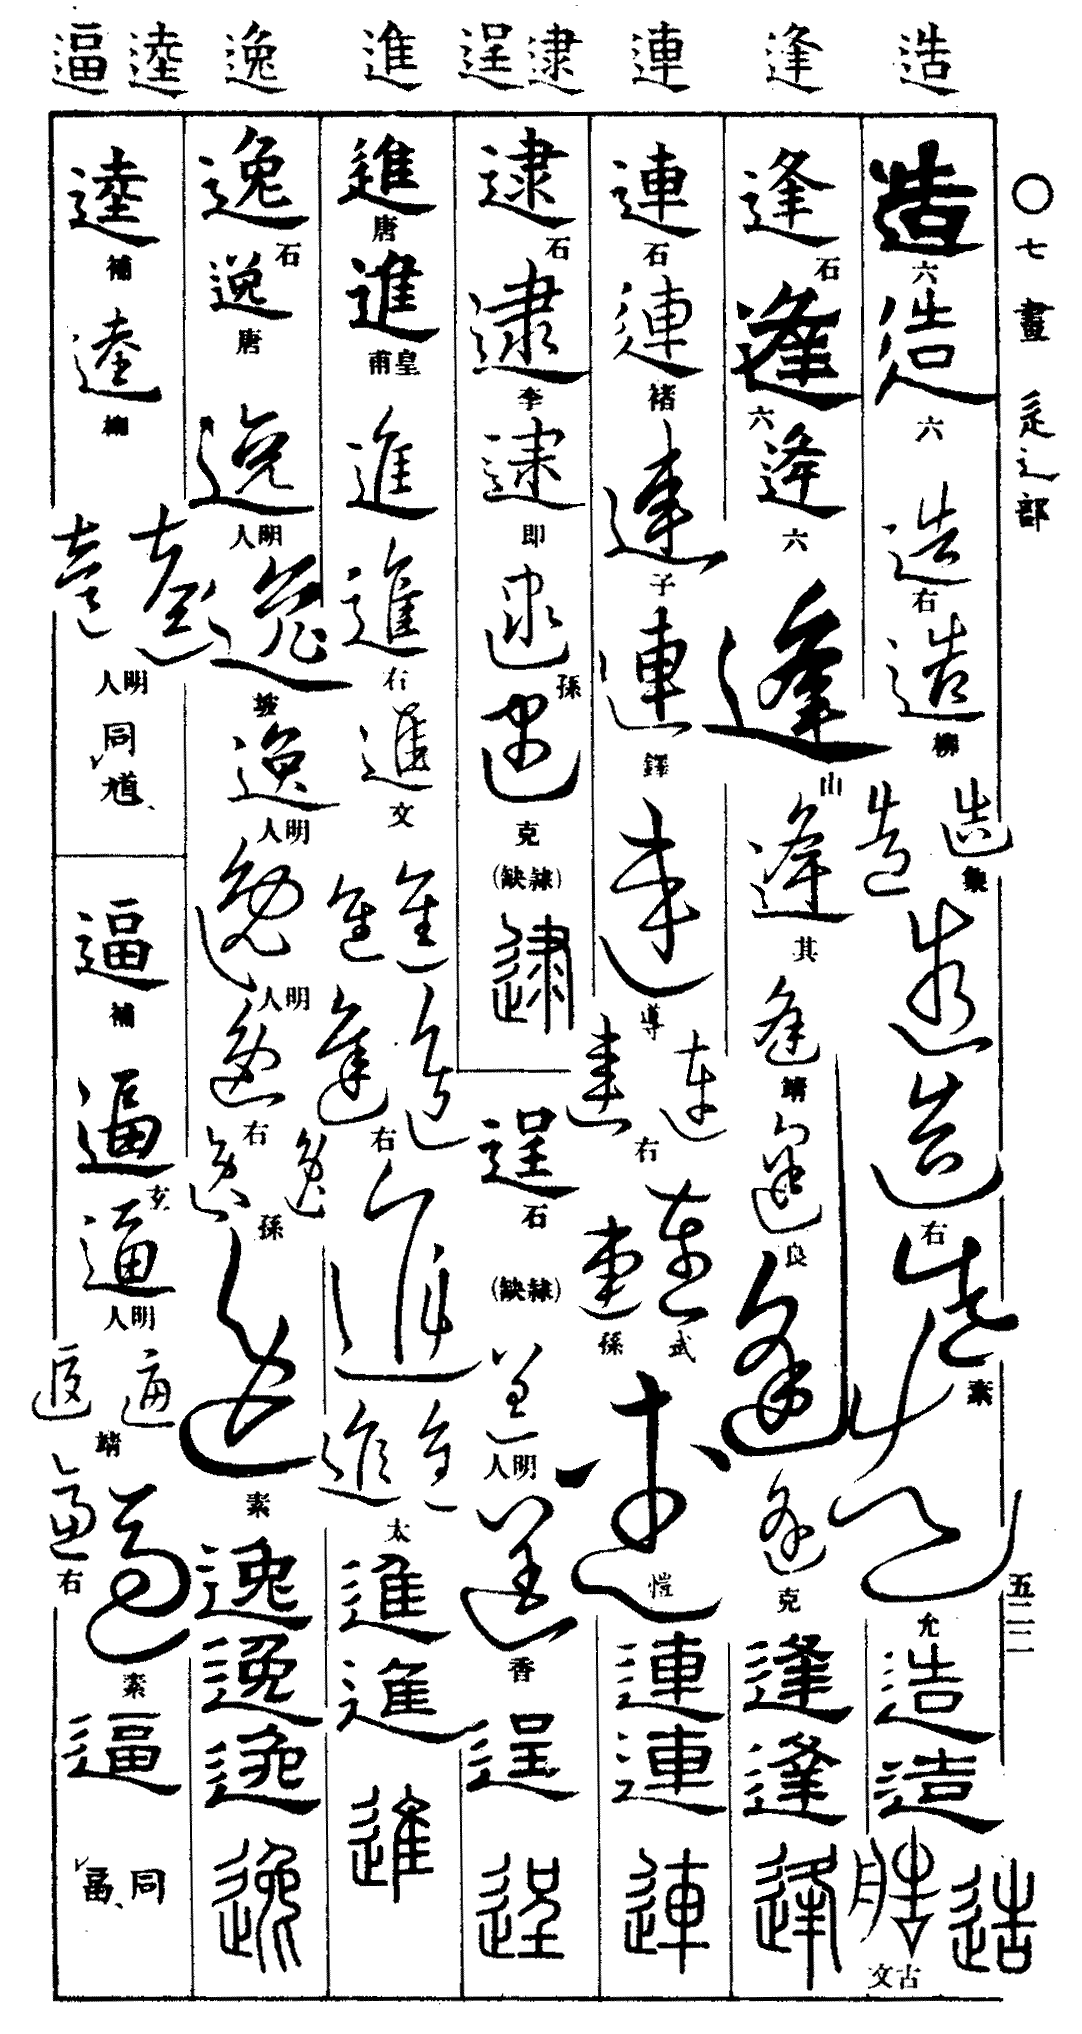 造 逢 連 逮 逞 進 逸 逵 逼
○七畫 辵辶部
五二二
造 六
造 六
造 右
造 柳
造 造 集
造
造 右
造 素
造 允
造
造
造 古文
逢 石
逢 六
逢 六
逢 山
逢 其
逢 靖
逢 良
逢
逢 克
逢
逢
逢
連 石
連 褚
連 子
連 鐸
連 導
連 連 右
連 武
連 孫
連 愷
連
連
連
逮 石
逮 李
逮 即
逮 孫
逮 克
(隸缺)
逮
逞 石
(隸缺)
逞 明人
逞 香
逞
逞
進 唐
進 皇甫
進
進 右
進 文
進 進
進 進 右
進
進 進 太
進
進
進
逸 石
逸 唐
逸 明人
逸 坡
逸 明人
逸 明人
逸 右
逸 逸 孫
逸 素
逸
逸
逸
逵 補
逵
逵 逵 明人
同馗、
逼 補
逼 玄
逼 明人
逼 逼 靖
逼 右
逼 素
逼
同畐、